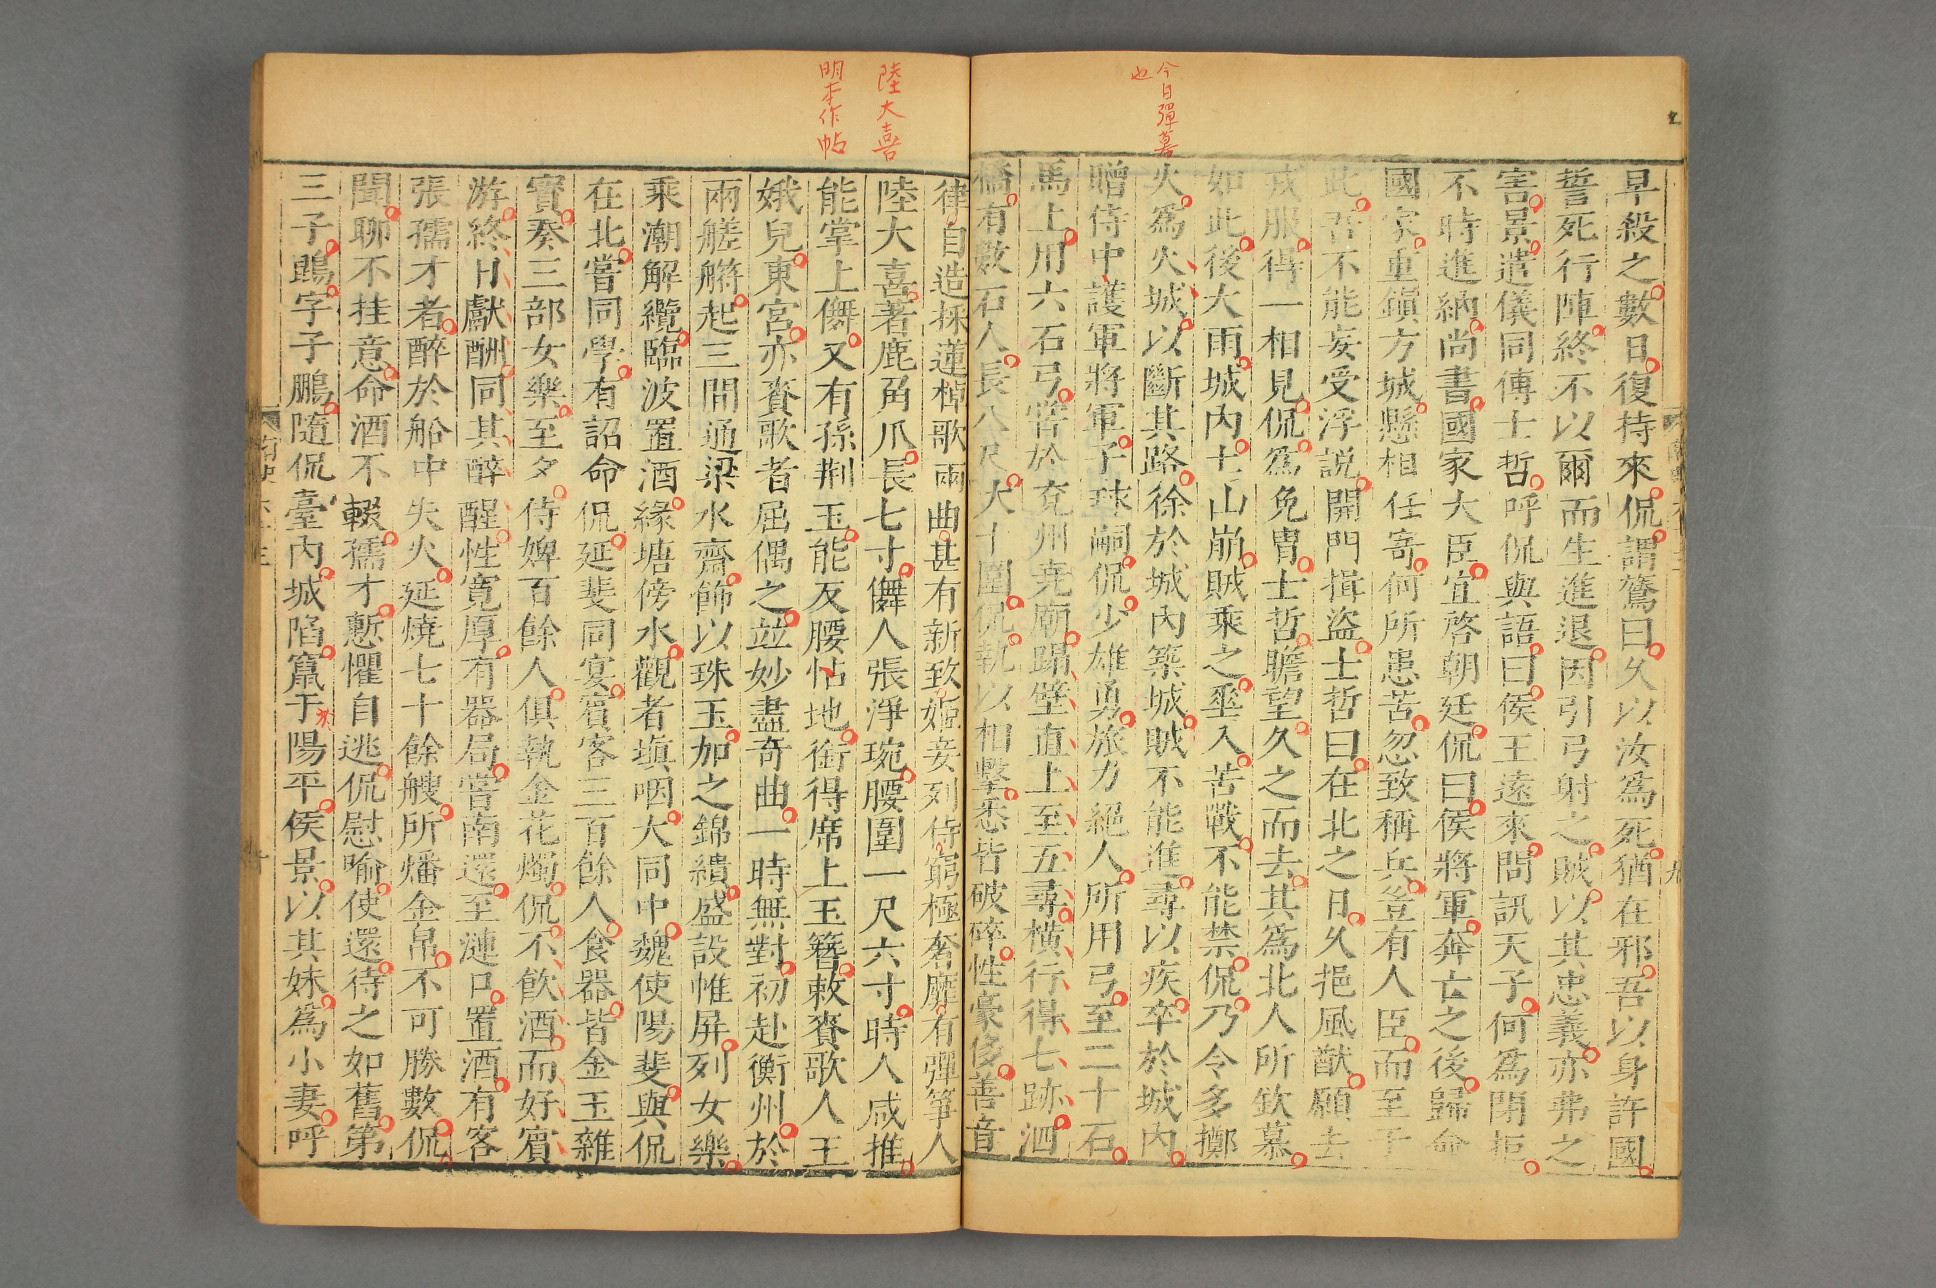 今日彈碁
也
早殺之數日復持來侃謂鷟曰久以汝爲死猶在邪吾以身許國
誓死行陣終不以爾而生進退因引弓射之賊以其忠義亦弗之
害景遣儀同傅士哲呼侃與語曰侯王遠來問訊天子何爲閉拒
不時進納尚書國家大臣宜啓朝廷侃曰侯將軍奔亡之後歸命
國家重鎭方城懸相任寄何所患苦忽致稱兵豈有人臣而至于
此吾不能妄受浮說開門揖盜士哲曰在北之日久挹風猷願去
戎服得一相見侃爲免冑士哲瞻望久之而去其爲北人所欽慕
如此後大雨城內土山崩賊乘之垂入苦戰不能禁侃乃令多擲
火爲火城以斷其路徐於城內築城賊不能進尋以疾卒於城內
贈侍中護軍將軍子球嗣侃少雄勇旅力絕人所用弓至二十石
馬上用六石弓嘗於兗州堯廟蹋壁直上至五尋橫行得七跡泗
橋有數石人長八尺大十圍侃執以相擊悉皆破碎性豪侈善音
陸大喜
明本作帖
律自造採蓮棹歌兩曲甚有新致姬妾列侍窮極奢靡有彈箏人
陸大喜著鹿角爪長七寸儛人張淨琬腰圍一尺六寸時人咸推
能掌上儛又有孫荆玉能反腰帖地銜得席上玉簪敕賚歌人王
娥兒東宮亦賚歌者屈偶之竝妙盡奇曲一時無對初赴衡州於
兩艖䑺起三間通梁水齋飾以珠玉加之錦繢盛設帷屏列女樂
乘潮解纜臨波置酒緣塘傍水觀者塡咽大同中魏使陽斐與侃
在北嘗同學有詔命侃延斐同宴賓客三百餘人食器皆金玉雜
寶奏三部女樂至夕侍婢百餘人俱執金花燭侃不飮酒而好賓
游終日獻酬同其醉醒性寬厚有器局嘗南還至漣口置酒有客
張孺才者醉於船中失火延燒七十餘艘所燔金帛不可勝數侃
聞聊不挂意命酒不輟孺才慙懼自逃侃慰喻使還待之如舊第
三子鵾字子鵬隨侃臺內城陷竄于陽平侯景以其妹爲小妻呼